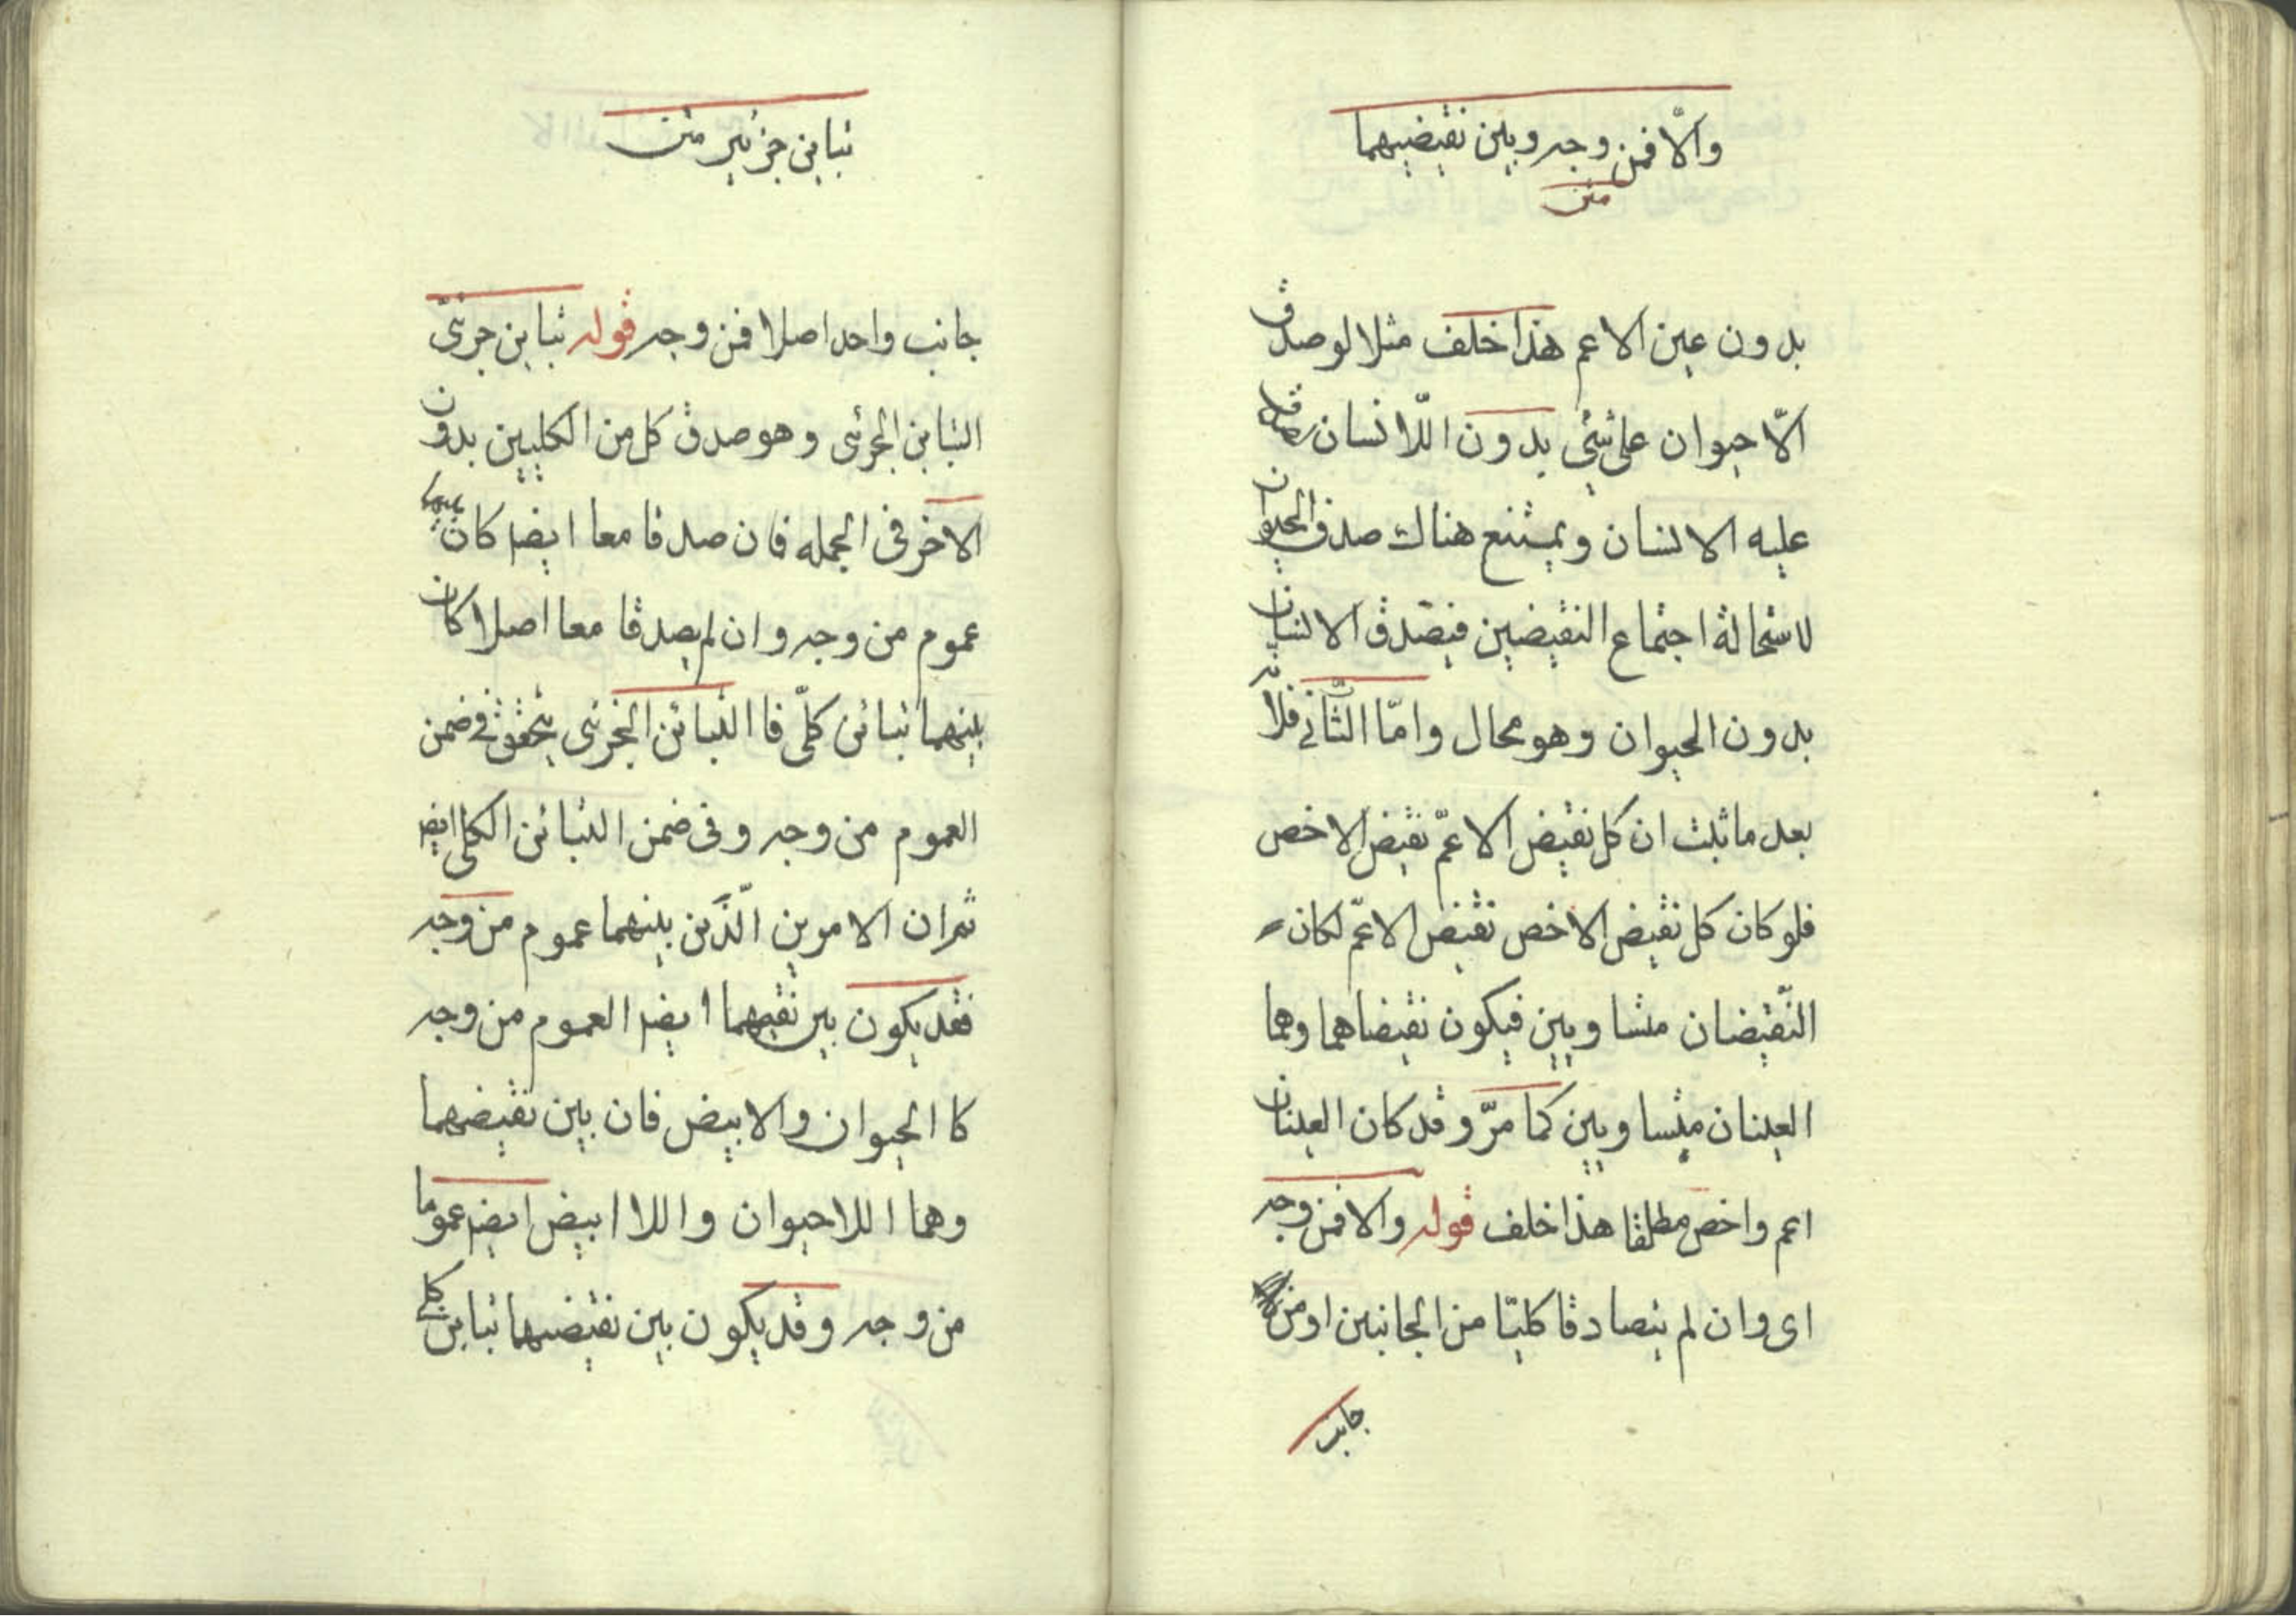 والّا فمن وجه وبين نقيضيهما
متن
بدون عين الاعم هذا خلف مثلا لو صدق
الّا حيوان على شئ بدون اللّا نسان صدق
عليه الانسان ويمتنع هناك صدق الحيوان
لاستحالة اجتماع النقيضين فيصدق الانسان
بدون الحيوان وهو محال وامّا الثّاني فلانّه
بعد ما ثبت ان كل نقيض الاعمّ نقيض الاخص
فلو كان كل نقيض الاخص نقيض الاعمّ لكان
النّقيضان متساويين فيكون نقيضاهما وهما
العينان متساويين كما مرّ وقد كان العينان
اعم واخص مطلقا هذا خلف قوله والا فمن وجه
اى وان لم يتصادقا كليّا من الجانبين او من
جانب
تباين جزئي متن
جانب واحد اصلا فمن وجه قوله تباين جزئىّ
التباين الجزئى وهو صدق كل من الكليين بدون
الاخر فى الجمله فان صدقا معا ايضا كان بينهما
عموم من وجه وان لم يصدقا معا اصلا كان
بينهما تبائن كلّى فا التبائن الجزئى يتحقق في ضمن
العموم من وجه وفى ضمن التبائن الكلى ايضا
ثم ان الامرين الّذين بينهما عموم من وجه
فقد يكون بين نقيهما ايضا العموم من وجه
كا الحيوان والابيض فان بين نقيضهما
وهما اللاحيوان واللا ابيض ايضا عموما
من وجه وقد يكون بين نقيضهما تباين كلي